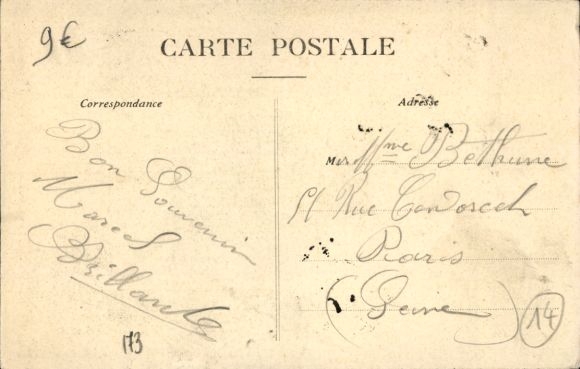 9€
CARTE POSTALE
Correspondance
Adresse
Bon Souvenir
Marcel
Brillant
M Mme Bethune
51 Rue Condorcet
Paris
(Seine)
14
173